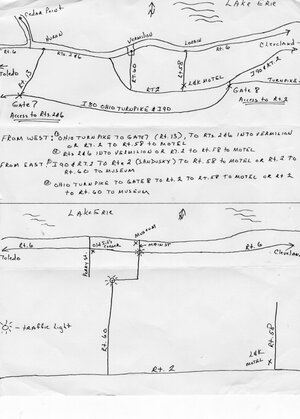 LAKE ERIE
Cedar Point
HURON
VERMILION
LORAIN
Rt. 6
Rts. 2&6
Rt. 6
Cleveland
Toledo
Rt. 13
Rt. 60
Rt. 58
L&K MOTEL
RT 2
I 90 & RT. 2
TURNPIKE
Gate 7
I 80 OHIO TURNPIKE & I 90
Gate 8
Access to Rts. 2&6
Access to Rt. 2
FROM WEST: ① OHIO TURNPIKE TO GATE 7 (Rt. 13), TO Rts. 2&6 INTO VERMILION
OR RT. 2 TO RT. 58 TO MOTEL
② Rts 2&6 INTO VERMILION OR RT. 2 TO RT. 58 TO MOTEL
FROM EAST: ① I 90 & RT. 2 TO Rt. 2 (SANDUSKY) TO RT. 58 TO MOTEL OR RT. 2 TO
RT. 60 TO MUSEUM
② OHIO TURNPIKE TO GATE 8 TO RT. 2 TO RT. 58 TO MOTEL OR RT 2
TO RT. 60 TO MUSEUM
LAKE ERIE
MUSEUM
MAIN ST.
Rt. 6
Rt. 6
Toledo
Cleveland
Perry St.
- traffic light
Rt. 60
Rt. 58
L&K
MOTEL
Rt. 2